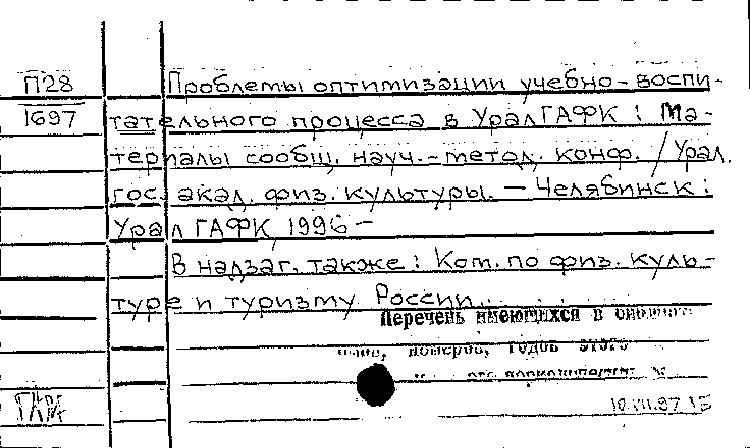 П28
1697
Проблемы оптимизации учебно-воспи-
тательного процесса в УралГАФК : Ма-
териалы сообщ. науч.-метод. конф. / Урал.
гос. акад. физ. культуры. — Челябинск :
УралГАФК, 1996 —
В надзаг. также : Ком. по физ. куль-
туре и туризму России.
Перечень имеющихся в
номеров, годов этого